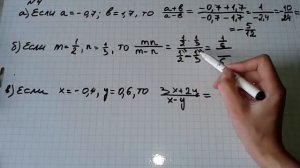 N4
а) Если a = -0,7; в = 1,7, то a+в / a-в = -0,7+1,7 / -0,7-1,7 = 1 / -2,4 = -10 / 24 =
= - 5/12
б) Если m = 1/2, n = 1/3, то mn / m-n =
в) Если x = -0,4, y = 0,6, то 3x+2y / x-y =